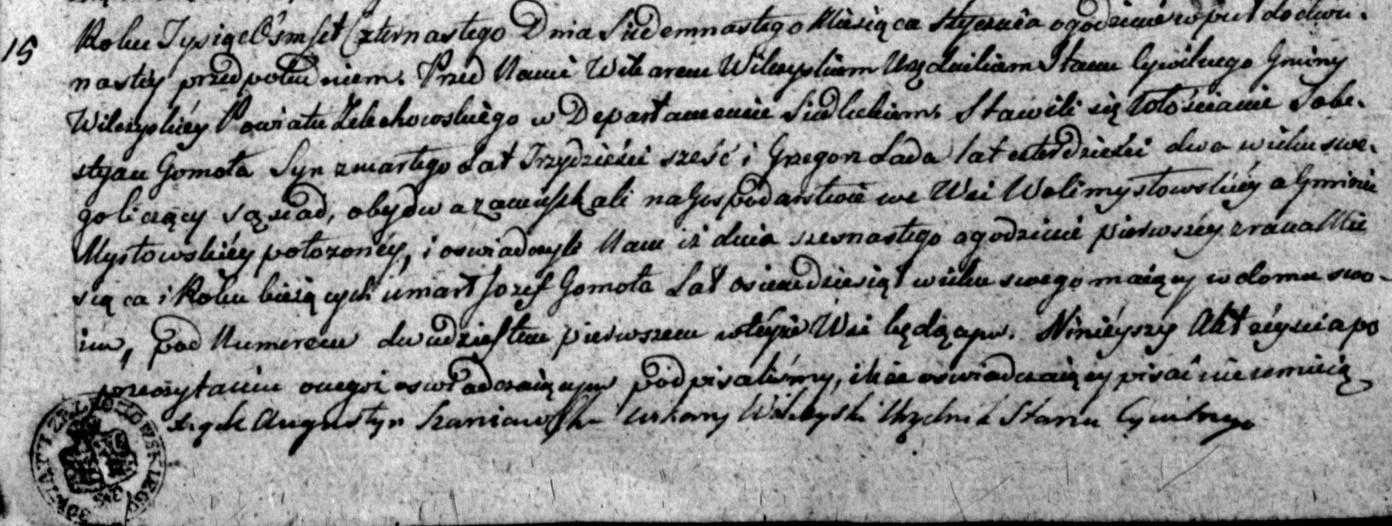 15 Roku Tysiąc Ośmset Czternastego Dnia Siedemnastego Miesiąca Stycznia o godzinie w puł do dwu-
nastey przed południem. Przed Nami Wikarem Wilczyskiem Urzędnikiem Stanu Cywilnego Gminy
Wilczyskiéy Powiatu Zelechowskiego w Departamencie Siedleckiem. Stawili się Włościanie Sobe-
styan Gomoła Syn zmarłego Lat Trzydzieści sześć i Grzegorz Łada lat czterdzieści dwa wieku swe-
go liczący sąsiad, obydwa zamieszkali na Gospodarstwie we Wsi Woli Mysłowskiéy a Gminie
Mysłowskiéy położonéy, i oswiadczyli Nam iż dnia szesnastego o godzinie pierwszéy z rana Mie
siąca i Roku bieżących umarł Jozef Gomoła Lat osiemdziesiąt wieku swego maiący w domu swo-
im, pod Numerem dwudziestem pierwszem w téyże Wsi będącym. Ninieyszy Akt zéyscia po
przeczytaniu onegoż oswiadczaiącym podpisaliśmy, ile oswiadczaiący pisać nie umieią
Augustyn Szaniawski Urzędnik Stanu Cywilnego